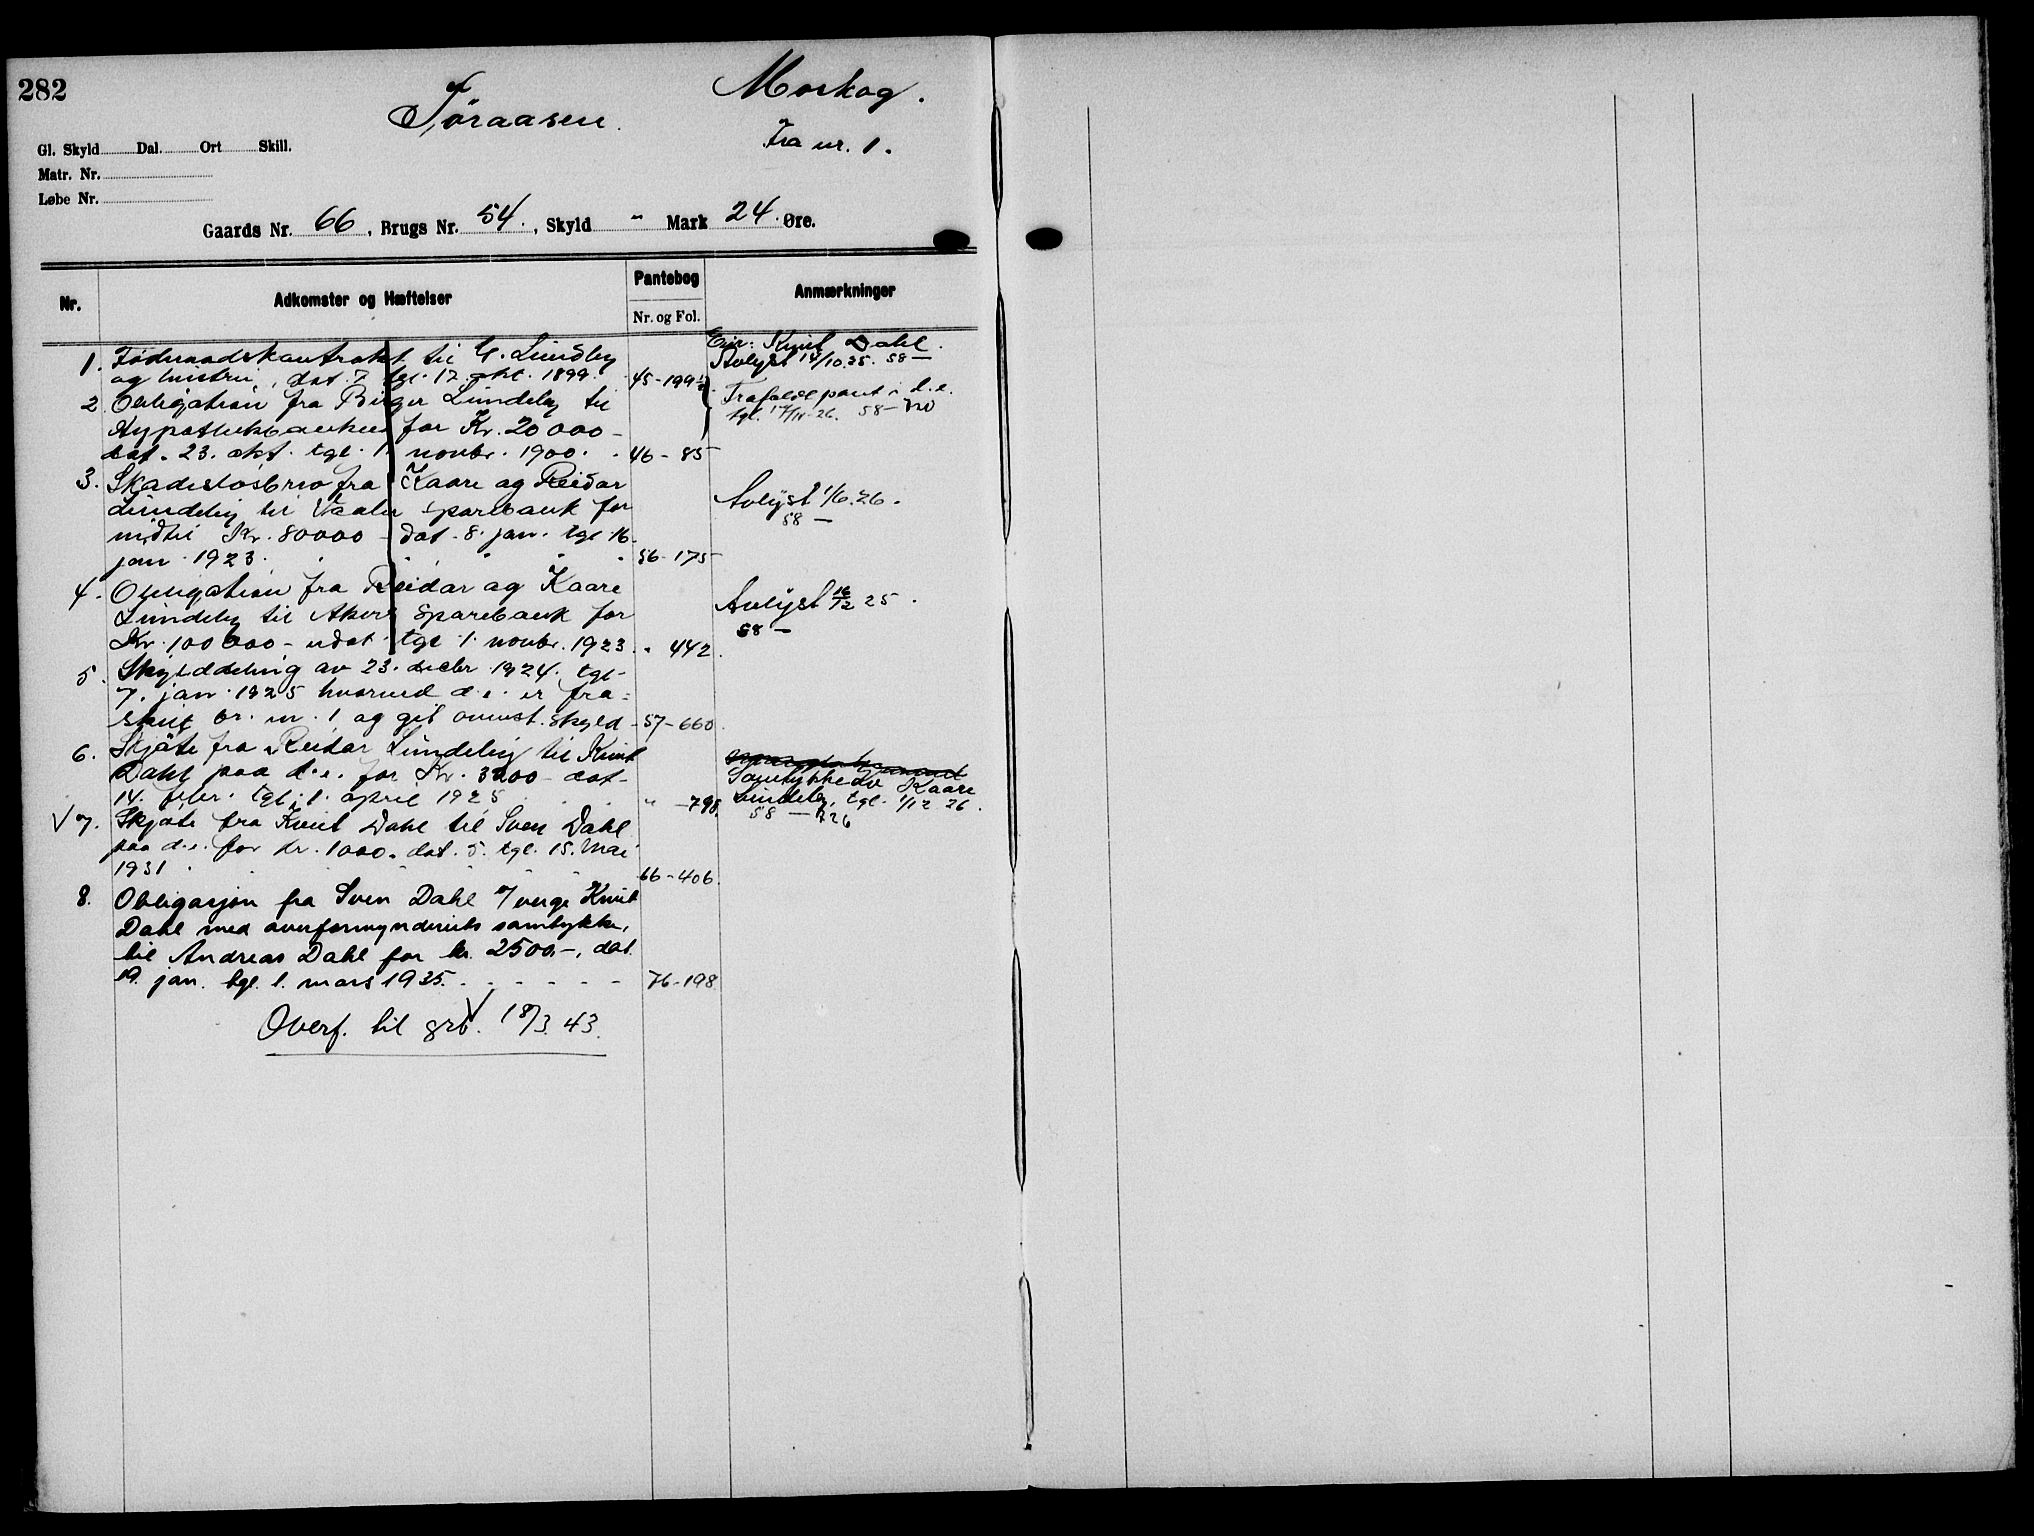 282
Morskog.
Tøraasen.
Fra nr. 1.
Gl. Skyld Dal. Ort Skill.
Matr. Nr.
Løbe Nr.
Gaards Nr. 66, Brugs Nr. 54., Skyld " Mark 24. Øre.
Nr. Adkomster og Hæftelser Pantebog Nr. og Fol. Anmærkninger
Eier: Knut Dahl.
1. Føderaadskontrakt til G. Lundby Avlyst 14/10.25. 58 —
og hustru, dat. 7 tgl. 12. okt. 1899. 45-199
2 Obligation fra Birger Lundeby til Frafaldt pant i d.e.
Hypothekbanken for Kr. 20 000 - tgl. 17/11-26. 58 —
dat. 23. okt. tgl. 1. novbr. 1900. 46-85
3. Skadesløsbrev fra Kaare og Reidar
Lundeby til Vaaler Sparebank for Avlyst 1/6.26.
indtil Kr. 80000 - dat. 8. jan. tgl. 16. 58 —
jan. 1923. 56-175
4. Obligation fra Reidar og Kaare
Lundeby til Akers Sparebank for Avlyst 16/12 25.
Kr. 100 000 - udat. tgl. 1. novbr. 1923. " 442 58 —
5. Skylddeling av 23. decbr. 1924, tgl.
7. jan. 1925 hvorved d.e. er fra=
skilt br. nr. 1 og git ovenst. skyld - 57-660.
6. Skjøte fra Reidar Lundeby til Knut
Dahl paa d.e. for Kr. 3200 - dat. Samtykke av Kaare
14. febr. tgl. 1. april 1925 " -798. Lundeby, tgl. 1/12 26.
√ 7. Skjøte fra Knut Dahl til Sven Dahl 58 — 726
paa d.e. for kr. 1000. dat. 5. tgl. 15. Mai
1931 66-406.
8. Obligasjon fra Sven Dahl v/ verge Knut
Dahl med overformynderiets samtykke,
til Andreas Dahl for kr. 2500.-, dat.
19. jan. tgl. 1. mars 1935. 76-198
Overf. til grb. 18/3. 43.